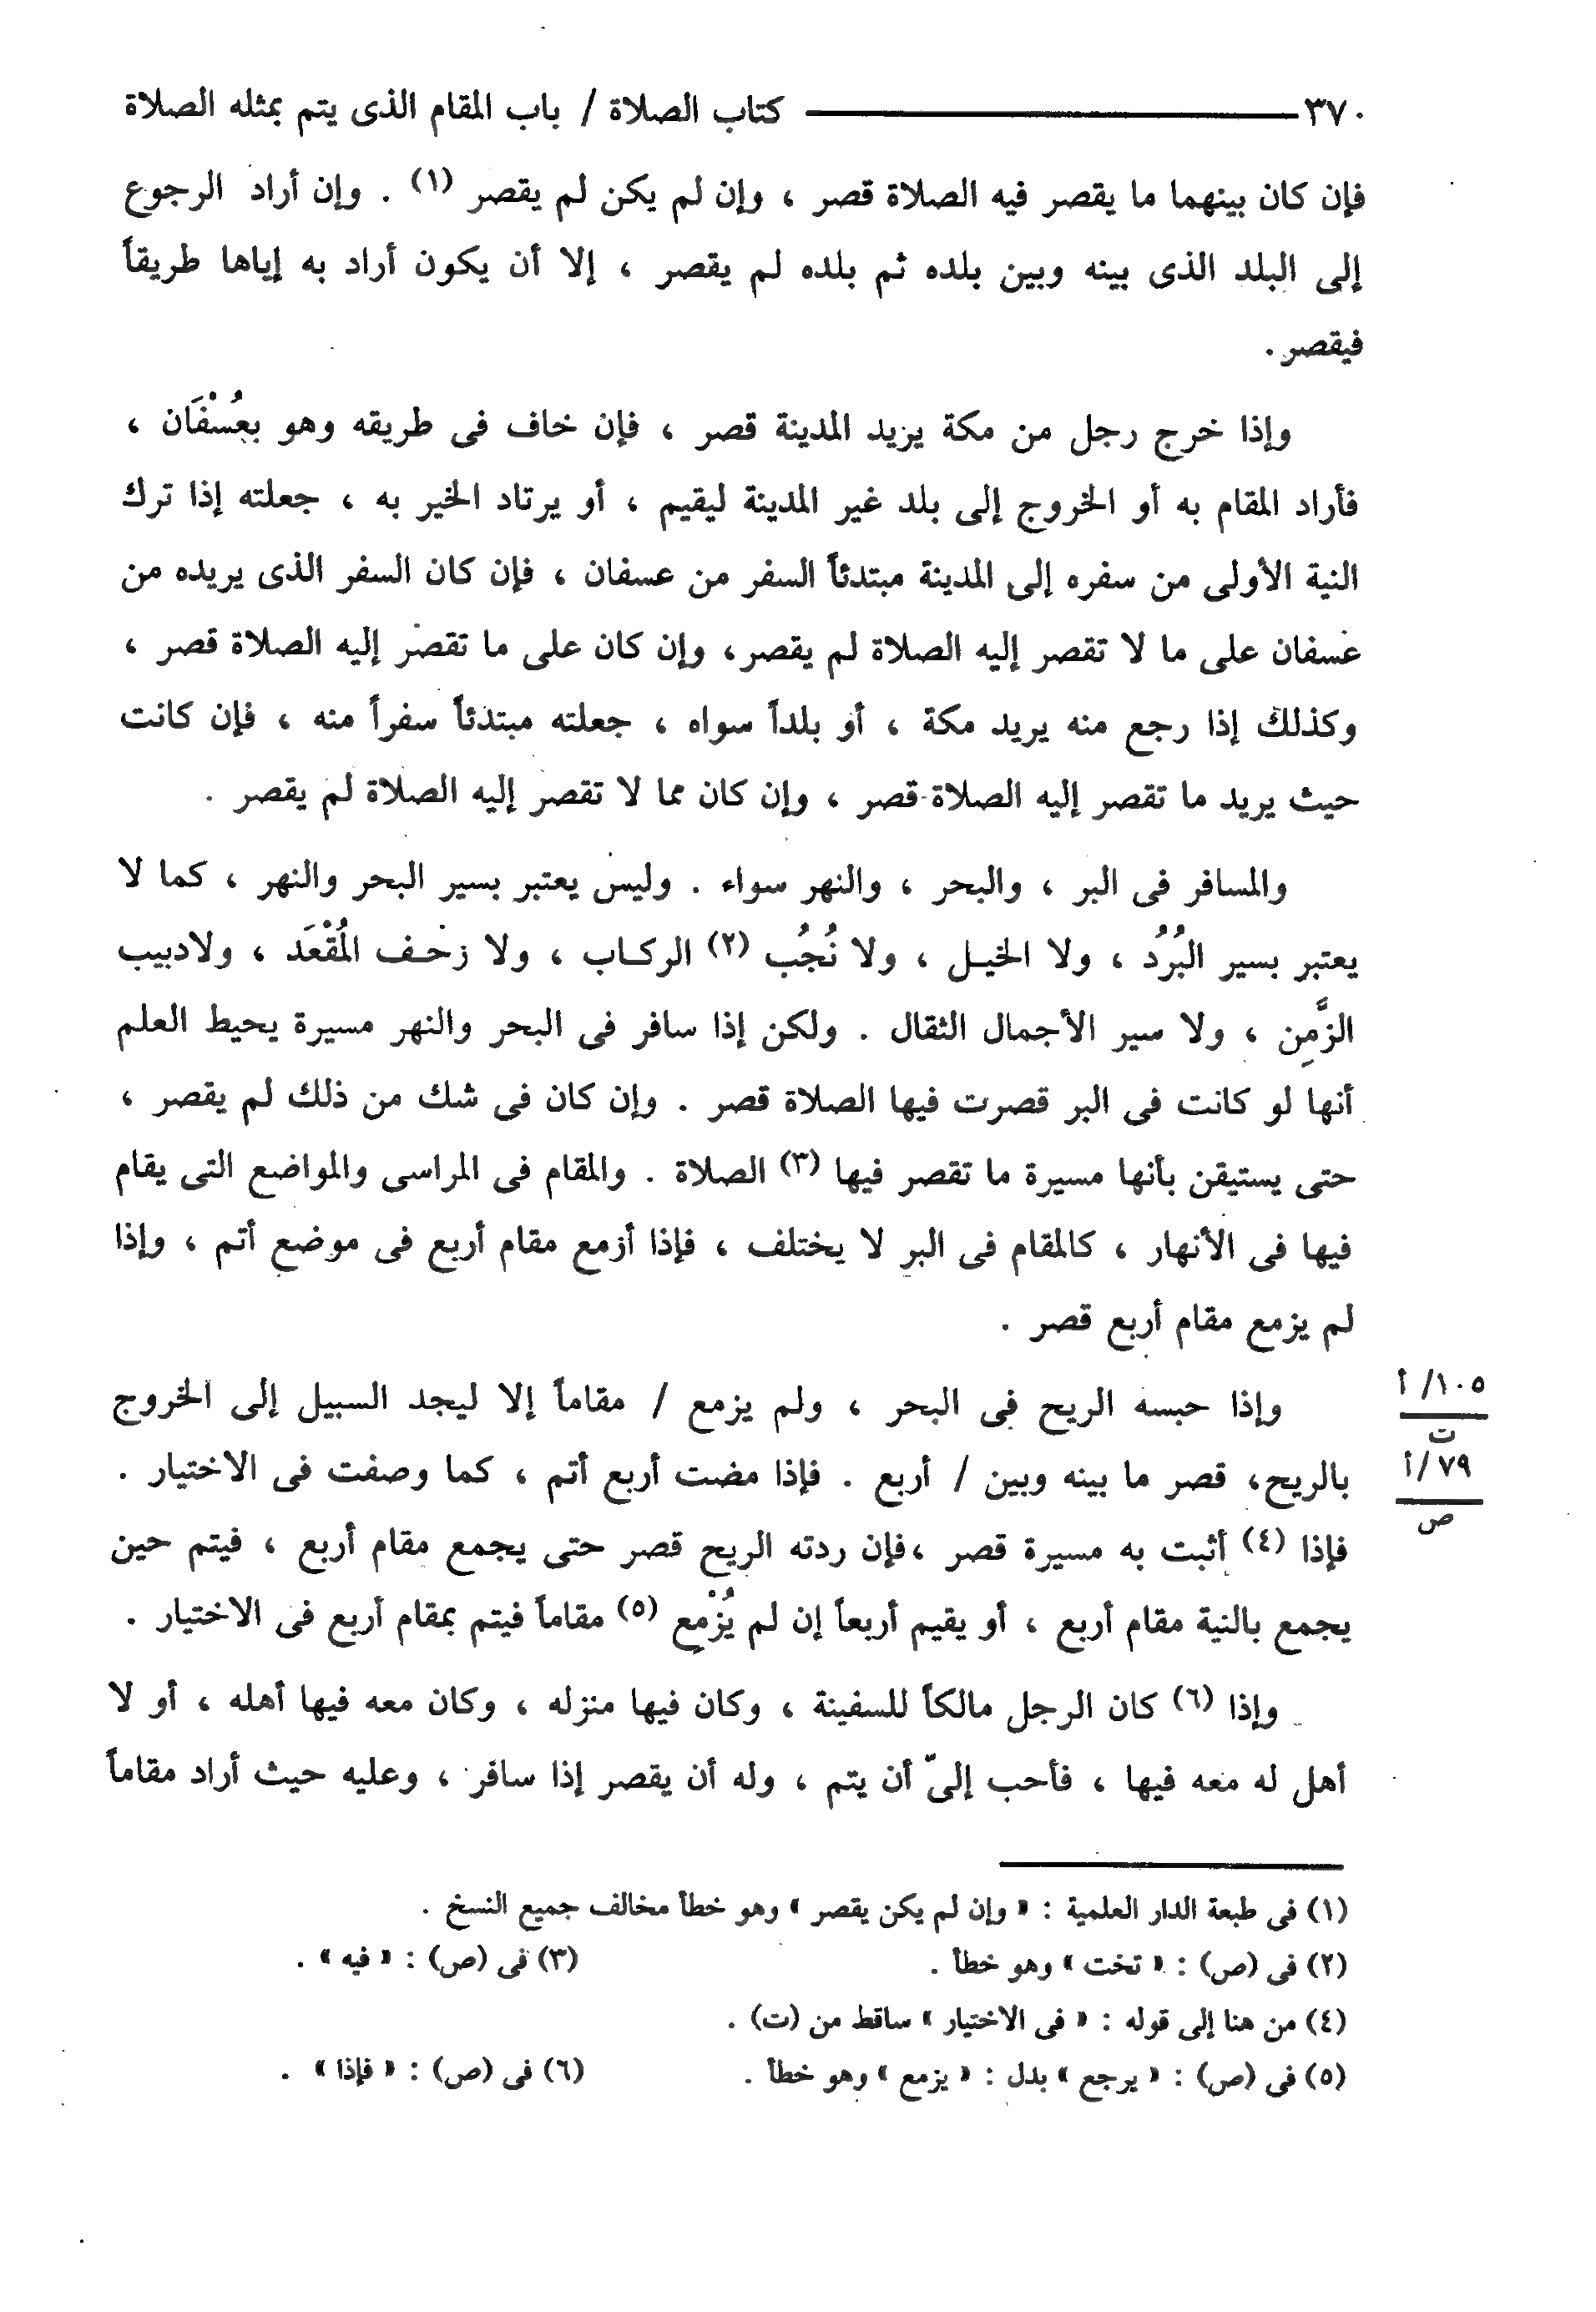 ٣٧٠ ـــــــــــــــــ كتاب الصلاة / باب المقام الذى يتم بمثله الصلاة
فإن كان بينهما ما يقصر فيه الصلاة قصر ، وإن لم يكن لم يقصر (١) . وإن أراد الرجوع
إلى البلد الذى بينه وبين بلده ثم بلده لم يقصر ، إلا أن يكون أراد به إياها طريقاً
فيقصر .
وإذا خرج رجل من مكة يريد المدينة قصر ، فإن خاف فى طريقه وهو بعُسْفَان ،
فأراد المقام به أو الخروج إلى بلد غير المدينة ليقيم ، أو يرتاد الخير به ، جعلته إذا ترك
النية الأولى من سفره إلى المدينة مبتدئاً السفر من عسفان ، فإن كان السفر الذى يريده من
عسفان على ما لا تقصر إليه الصلاة لم يقصر، وإن كان على ما تقصر إليه الصلاة قصر ،
وكذلك إذا رجع منه يريد مكة ، أو بلداً سواه ، جعلته مبتدئاً سفراً منه ، فإن كانت
حيث يريد ما تقصر إليه الصلاة قصر ، وإن كان مما لا تقصر إليه الصلاة لم يقصر .
والمسافر فى البر ، والبحر ، والنهر سواء . وليس يعتبر بسير البحر والنهر ، كما لا
يعتبر بسير البُرُد ، ولا الخيـل ، ولا نُجُب (٢) الركـاب ، ولا زحـف المُقْعَد ، ولادبيب
الزَّمِن ، ولا سير الأجمال الثقال . ولكن إذا سافر فى البحر والنهر مسيرة يحيط العلم
أنها لو كانت فى البر قصرت فيها الصلاة قصر . وإن كان فى شك من ذلك لم يقصر ،
حتى يستيقن بأنها مسيرة ما تقصر فيها (٣) الصلاة . والمقام فى المراسى والمواضع التى يقام
فيها فى الأنهار ، كالمقام فى البر لا يختلف ، فإذا أزمع مقام أربع فى موضع أتم ، وإذا
لم يزمع مقام أربع قصر .
١٠٥/ أ
ت
وإذا حبسه الريح فى البحر ، ولم يزمع / مقاماً إلا ليجد السبيل إلى الخروج
٧٩/ أ
ص
بالريح، قصر ما بينه وبين / أربع . فإذا مضت أربع أتم ، كما وصفت فى الاختيار .
فإذا (٤) أثبت به مسيرة قصر ،فإن ردته الريح قصر حتى يجمع مقام أربع ، فيتم حين
يجمع بالنية مقام أربع ، أو يقيم أربعاً إن لم يُزْمِع (٥) مقاماً فيتم بمقام أربع فى الاختيار .
وإذا (٦) كان الرجل مالكاً للسفينة ، وكان فيها منزله ، وكان معه فيها أهله ، أو لا
أهل له معه فيها ، فأحب إلىّ أن يتم ، وله أن يقصر إذا سافر ، وعليه حيث أراد مقاماً
(١) فى طبعة الدار العلمية : « وإن لم يكن يقصر » وهو خطأ مخالف جميع النسخ .
(٢) فى (ص) : « تخت » وهو خطأ . (٣) فى (ص) : « فيه » .
(٤) من هنا إلى قوله : « فى الاختيار » ساقط من (ت) .
(٥) فى (ص) : « يرجع » بدل : « يزمع » وهو خطأ . (٦) فى (ص) : « فإذا » .